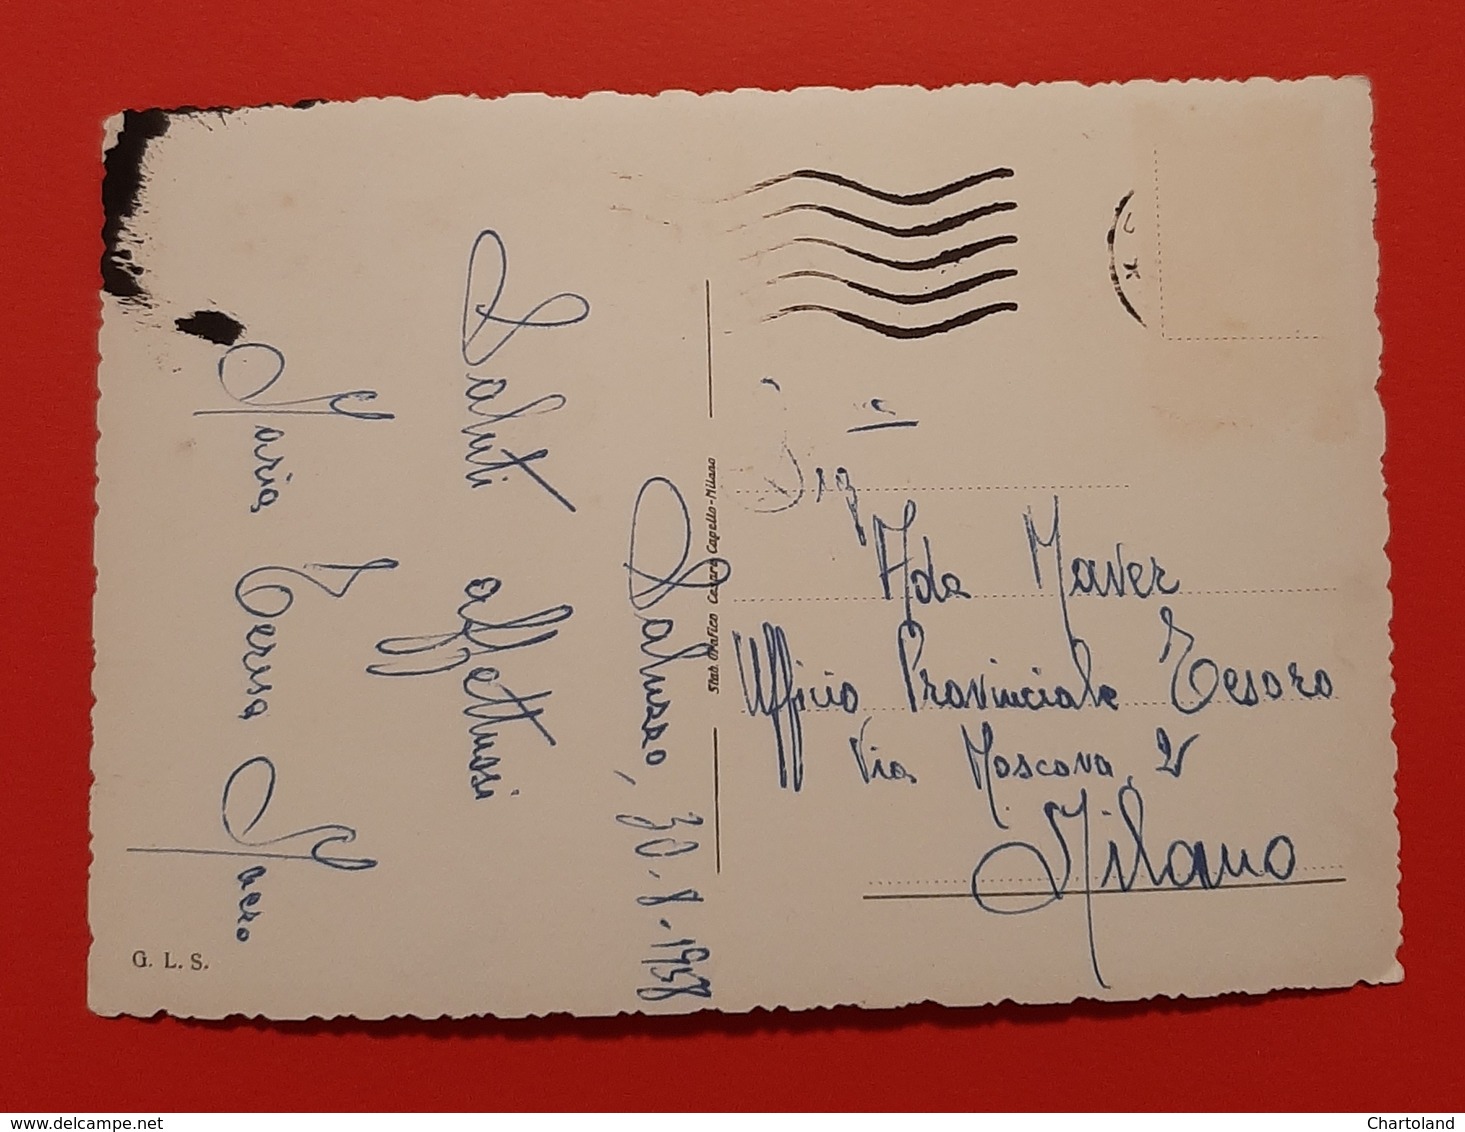 Saluzzo, 30.8.1958
Saluti affettuosi
Maria Teresa
G. L. S.
Stab. Grafico Cesare Capello - Milano
Sig.na
Ada Maver
Ufficio Provinciale Tesoro
Via Moscova, 2
Milano
delcampe.net
Chartoland